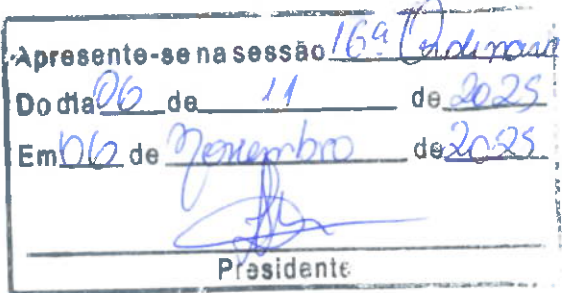 Apresente-se na sessão 16ª Ordinária
Do dia 06 de 11 de 2025
Em 06 de Novembro de 2025
Presidente